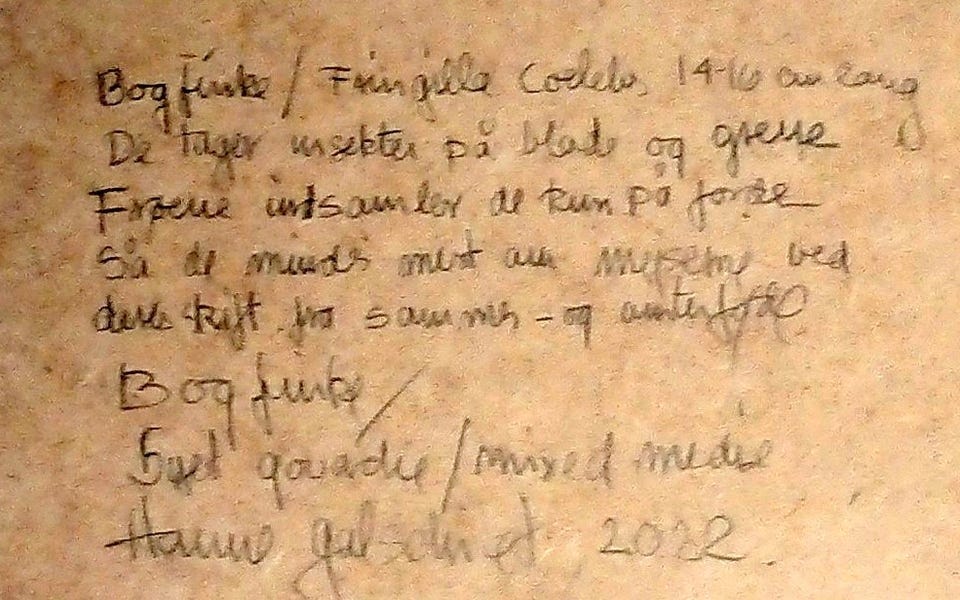 Bogfinke / Fringilla Coelebs, 14-16 cm lang
De tager insekter på blade og grene
Frøene indsamler de kun på jorde
Så de minds mest om ved
deres skift fra sommer - og vinterføde
Bogfinke /
gouache / mixed media
Hanne 2022